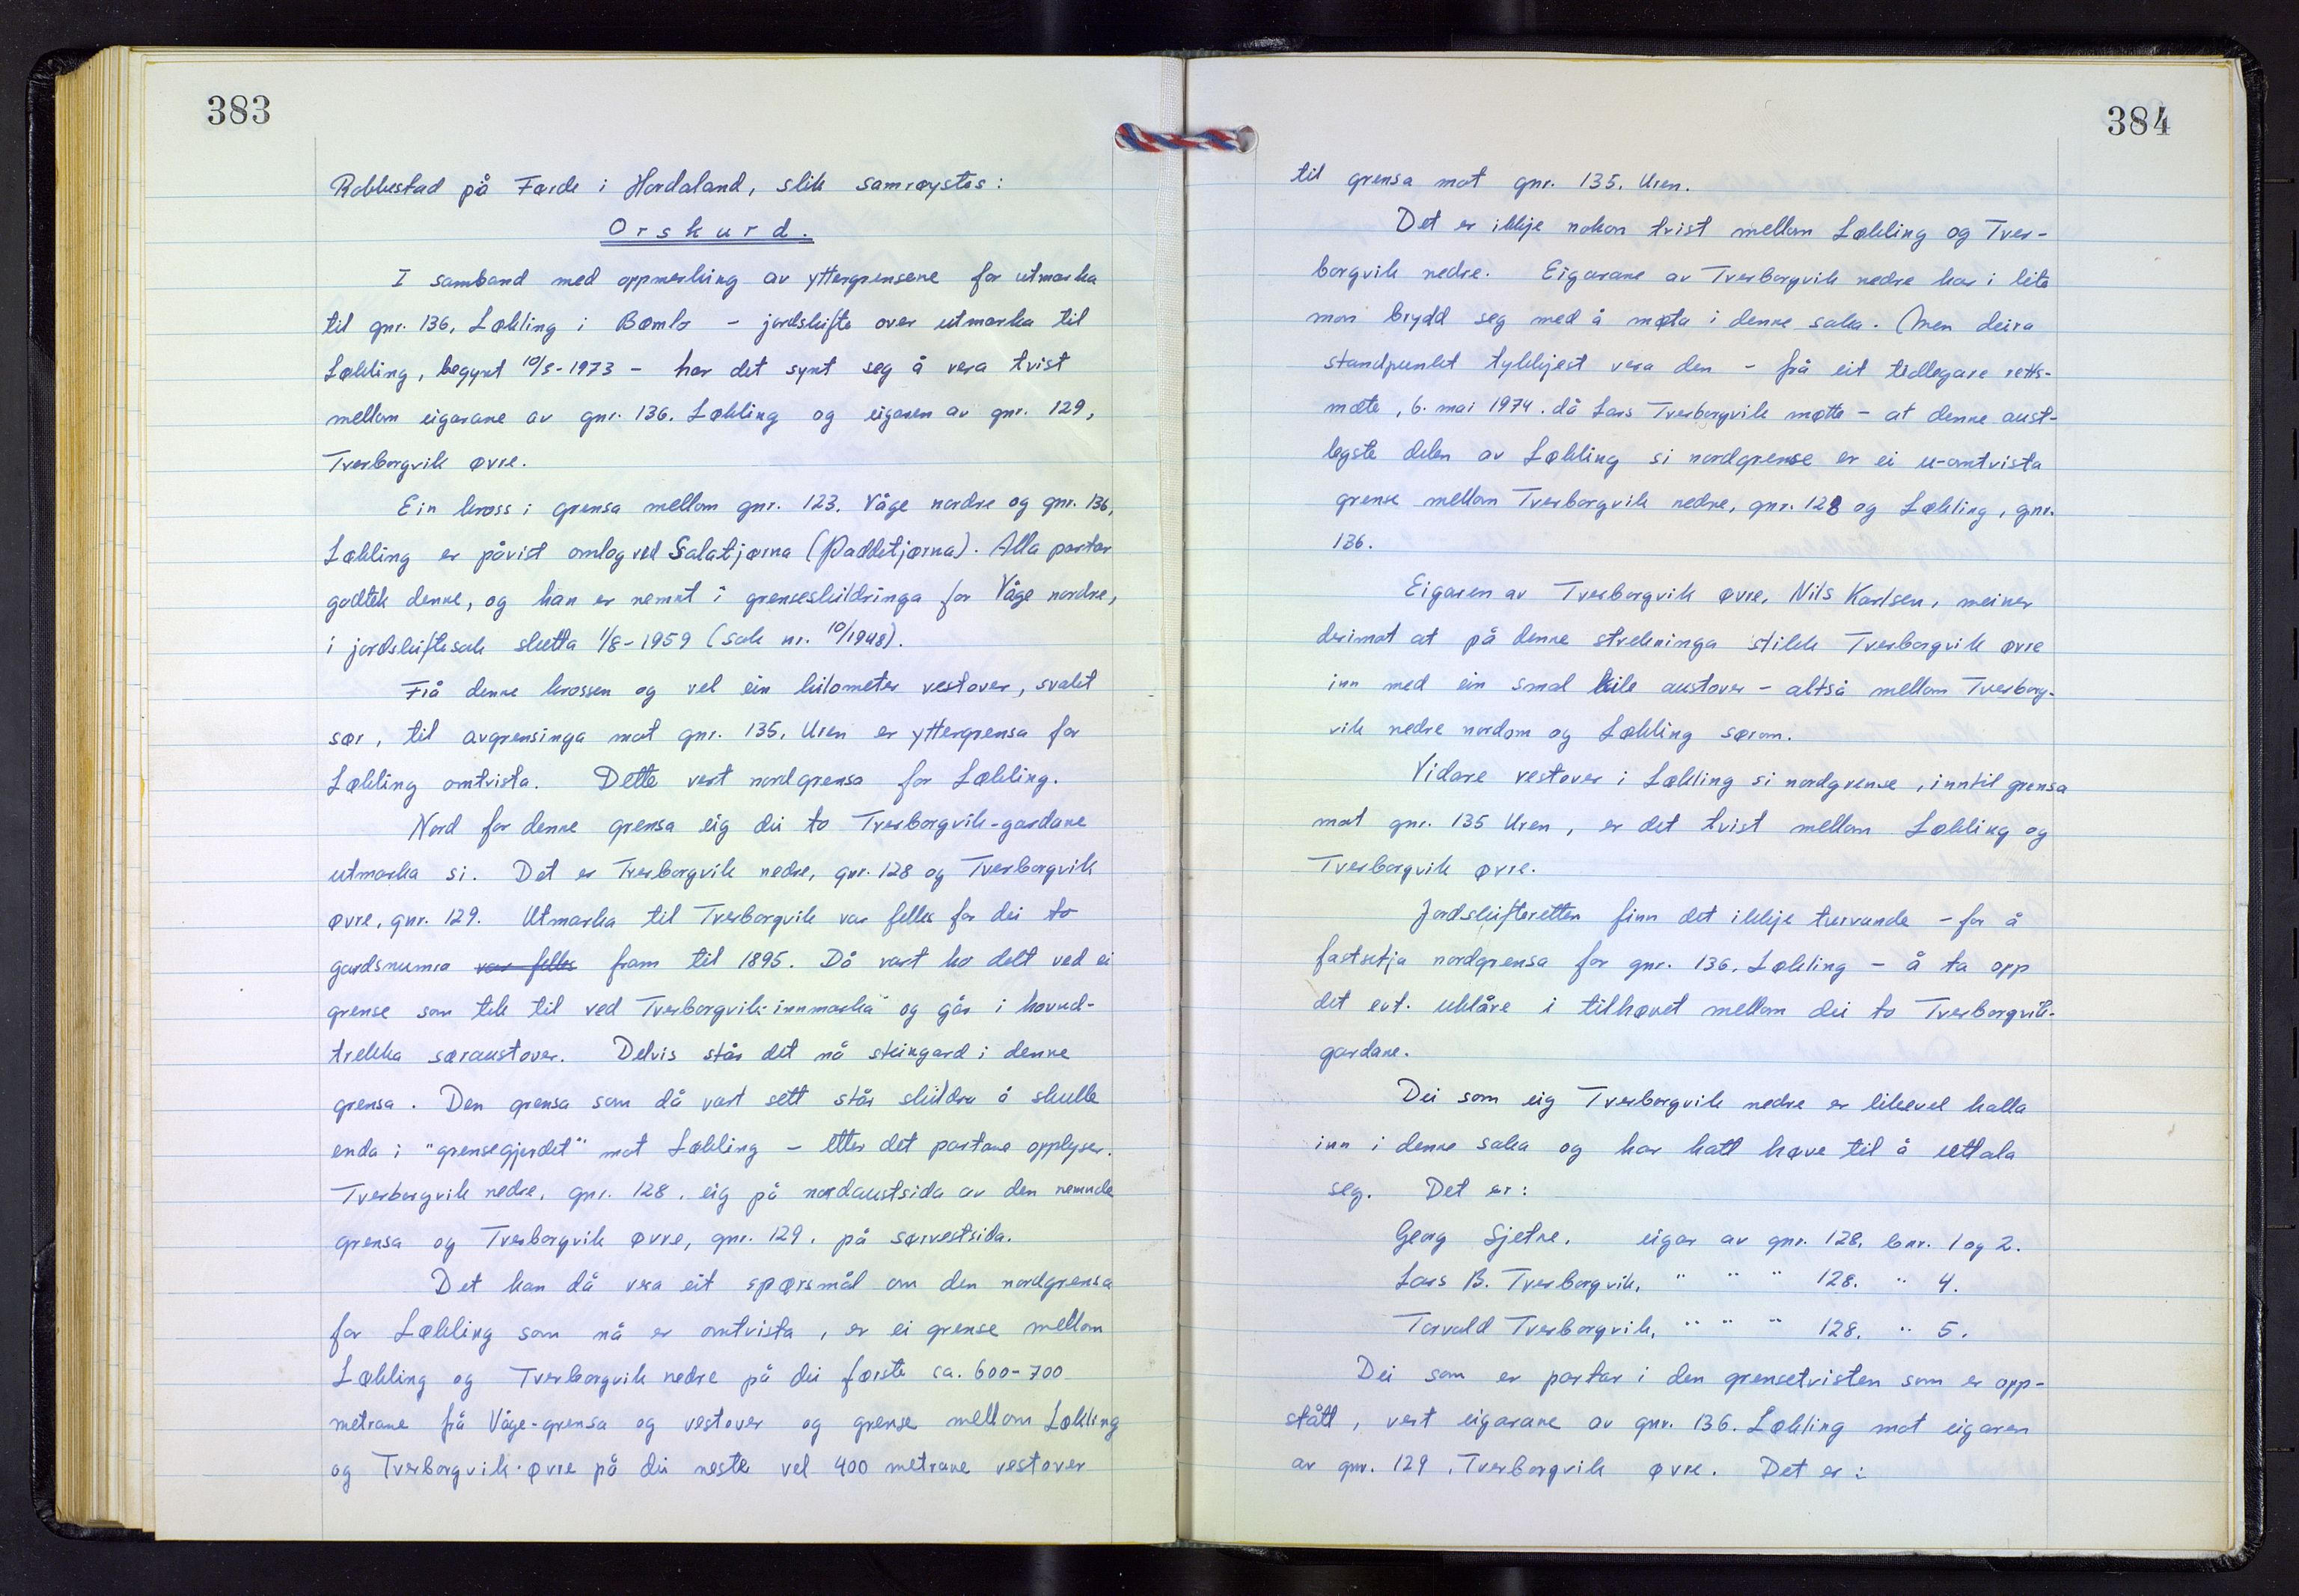 383
Robbestad på Førde i Hordaland, slik samrøystes:
Orskurd.
I samband med oppmerking av yttergrensene for utmarka
til gnr. 136, Løkling i Bømlo - jordskifte over utmarka til
Løkling, begynt 10/5-1973 - har det synt seg å vera tvist
mellom eigarane av gnr. 136. Løkling og eigaren av gnr. 129,
Tverborgvik øvre.
Ein kross i grensa mellom gnr. 123. Våge nordre og gnr. 136,
Løkling er påvist omlag ved Salatjørna (Paddetjørna). Alla partar
godtek denne, og han er nemnt i grenseskildringa for Våge nordre,
i jordskiftesak slutta 1/8-1959 (sak nr. 10/1948).
Frå denne krossen og vel ein kilometer vestover, svakt
sør, til avgrensinga mot gnr. 135, Uren er yttergrensa for
Løkling omtvista. Dette vert nordgrensa for Løkling.
Nord for denne grensa eig dei to Tverborgvik-gardane
utmarka si. Det er Tverborgvik nedre, gnr. 128 og Tverborgvik
øvre, gnr. 129. Utmarka til Tverborgvik var felles for dei to
gardsnumra var felles fram til 1895. Då vart ho delt ved ei
grense som tek til ved Tverborgvik-innmarka og går i hovud-
trekka søraustover. Delvis står det nå steingard i denne
grensa. Den grensa som då vart sett står skildra å skulle
enda i "grensegjerdet" mot Løkling - etter det partane opplyser.
Tverborgvik nedre, gnr. 128. eig på nordaustsida av den nemnde
grensa og Tverborgvik øvre, gnr. 129. på sørvestsida.
Det kan då vera eit spørsmål om den nordgrensa
for Løkling som nå er omtvista, er ei grense mellom
Løkling og Tverborgvik nedre på dei første ca. 600-700
metrane frå Våge-grensa og vestover og grense mellom Løkling
og Tverborgvik-øvre på dei neste vel 400 metrane vestover
384
til grensa mot gnr. 135. Uren.
Det er ikkje nokon tvist mellom Løkling og Tver-
borgvik nedre. Eigarane av Tverborgvik nedre har i lita
mon brydd seg med å møta i denne saka. Men deira
standpunkt tykkjest vera den - frå eit tidlegare retts-
møte, 6. mai 1974. då Lars Tverborgvik møtte - at denne aust-
legste delen av Løkling si nordgrense er ei u-omtvista
grense mellom Tverborgvik nedre, gnr. 128 og Løkling, gnr.
136.
Eigaren av Tverborgvik øvre, Nils Karlsen, meiner
derimot at på denne strekninga stikk Tverborgvik øvre
inn med ein smal kile austover - altså mellom Tverborg-
vik nedre nordom og Løkling sørom.
Vidare vestover i Løkling si nordgrense, inntil grensa
mot gnr. 135 Uren, er det tvist mellom Løkling og
Tverborgvik øvre.
Jordskifteretten finn det ikkje turvande - for å
fastsetja nordgrensa for gnr. 136. Løkling - å ta opp
det evt. uklåre i tilhøvet mellom dei to Tverborgvik-
gardane.
Dei som eig Tverborgvik nedre er likevel kalla
inn i denne saka og har hatt høve til å uttala
seg. Det er:
Georg Sjetne. eigar av gnr. 128. bnr. 1 og 2.
Lars B. Tverborgvik, " " " 128. " 4.
Torvald Tverborgvik, " " " 128. " 5.
Dei som er partar i den grensetvisten som er opp-
stått, vert eigarane av gnr. 136. Løkling mot eigaren
av gnr. 129. Tverborgvik øvre. Det er: